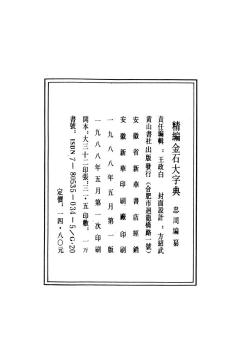 精編金石大字典　忍周編纂
責任編輯：王政白　封面設計：方紹武
黃山書社出版發行（合肥市迴龍橋路一號）
安徽省新華書店經銷
安徽新華印刷廠印刷
一九八八年五月第一版
一九八八年五月第一次印刷
開本：大三十二印張：三二·五印數：一万
書號：ISBN 7—80535—034—5/G·20
定價：一四·八〇元